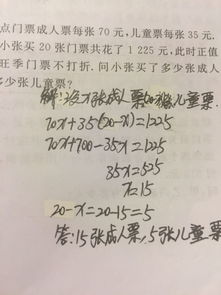 点门票成人票每张 70 元,儿童票每张 35 元.
小张买 20 张门票共花了 1 225 元,此时正值
旺季门票不打折.问小张买了多少张成人
多少张儿童票?
解:设x张成人票 儿童票.
70x+35(20-x)=1225
70x+700-35x=1225
35x=525
x=15
20-x=20-15=5
答:15张成人票,5张儿童票